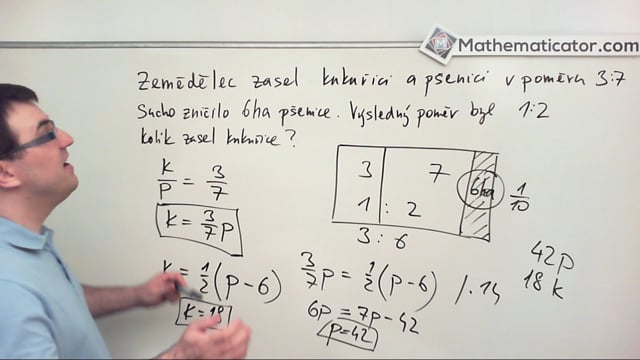 Mathematicator.com
Zemědělec zasel kukuřici a pšenici v poměru 3:7
Sucho zničilo 6ha pšenice. Výsledný poměr byl 1:2
Kolik zasel kukuřice?
K/P = 3/7
K = 3/7 P
K = 1/2 (P - 6)
K = 18
3 7 6ha 1/10
1 : 2
3 : 6
3/7 P = 1/2 (P - 6) /. 14
6P = 7P - 42
P = 42
42 p
18 k